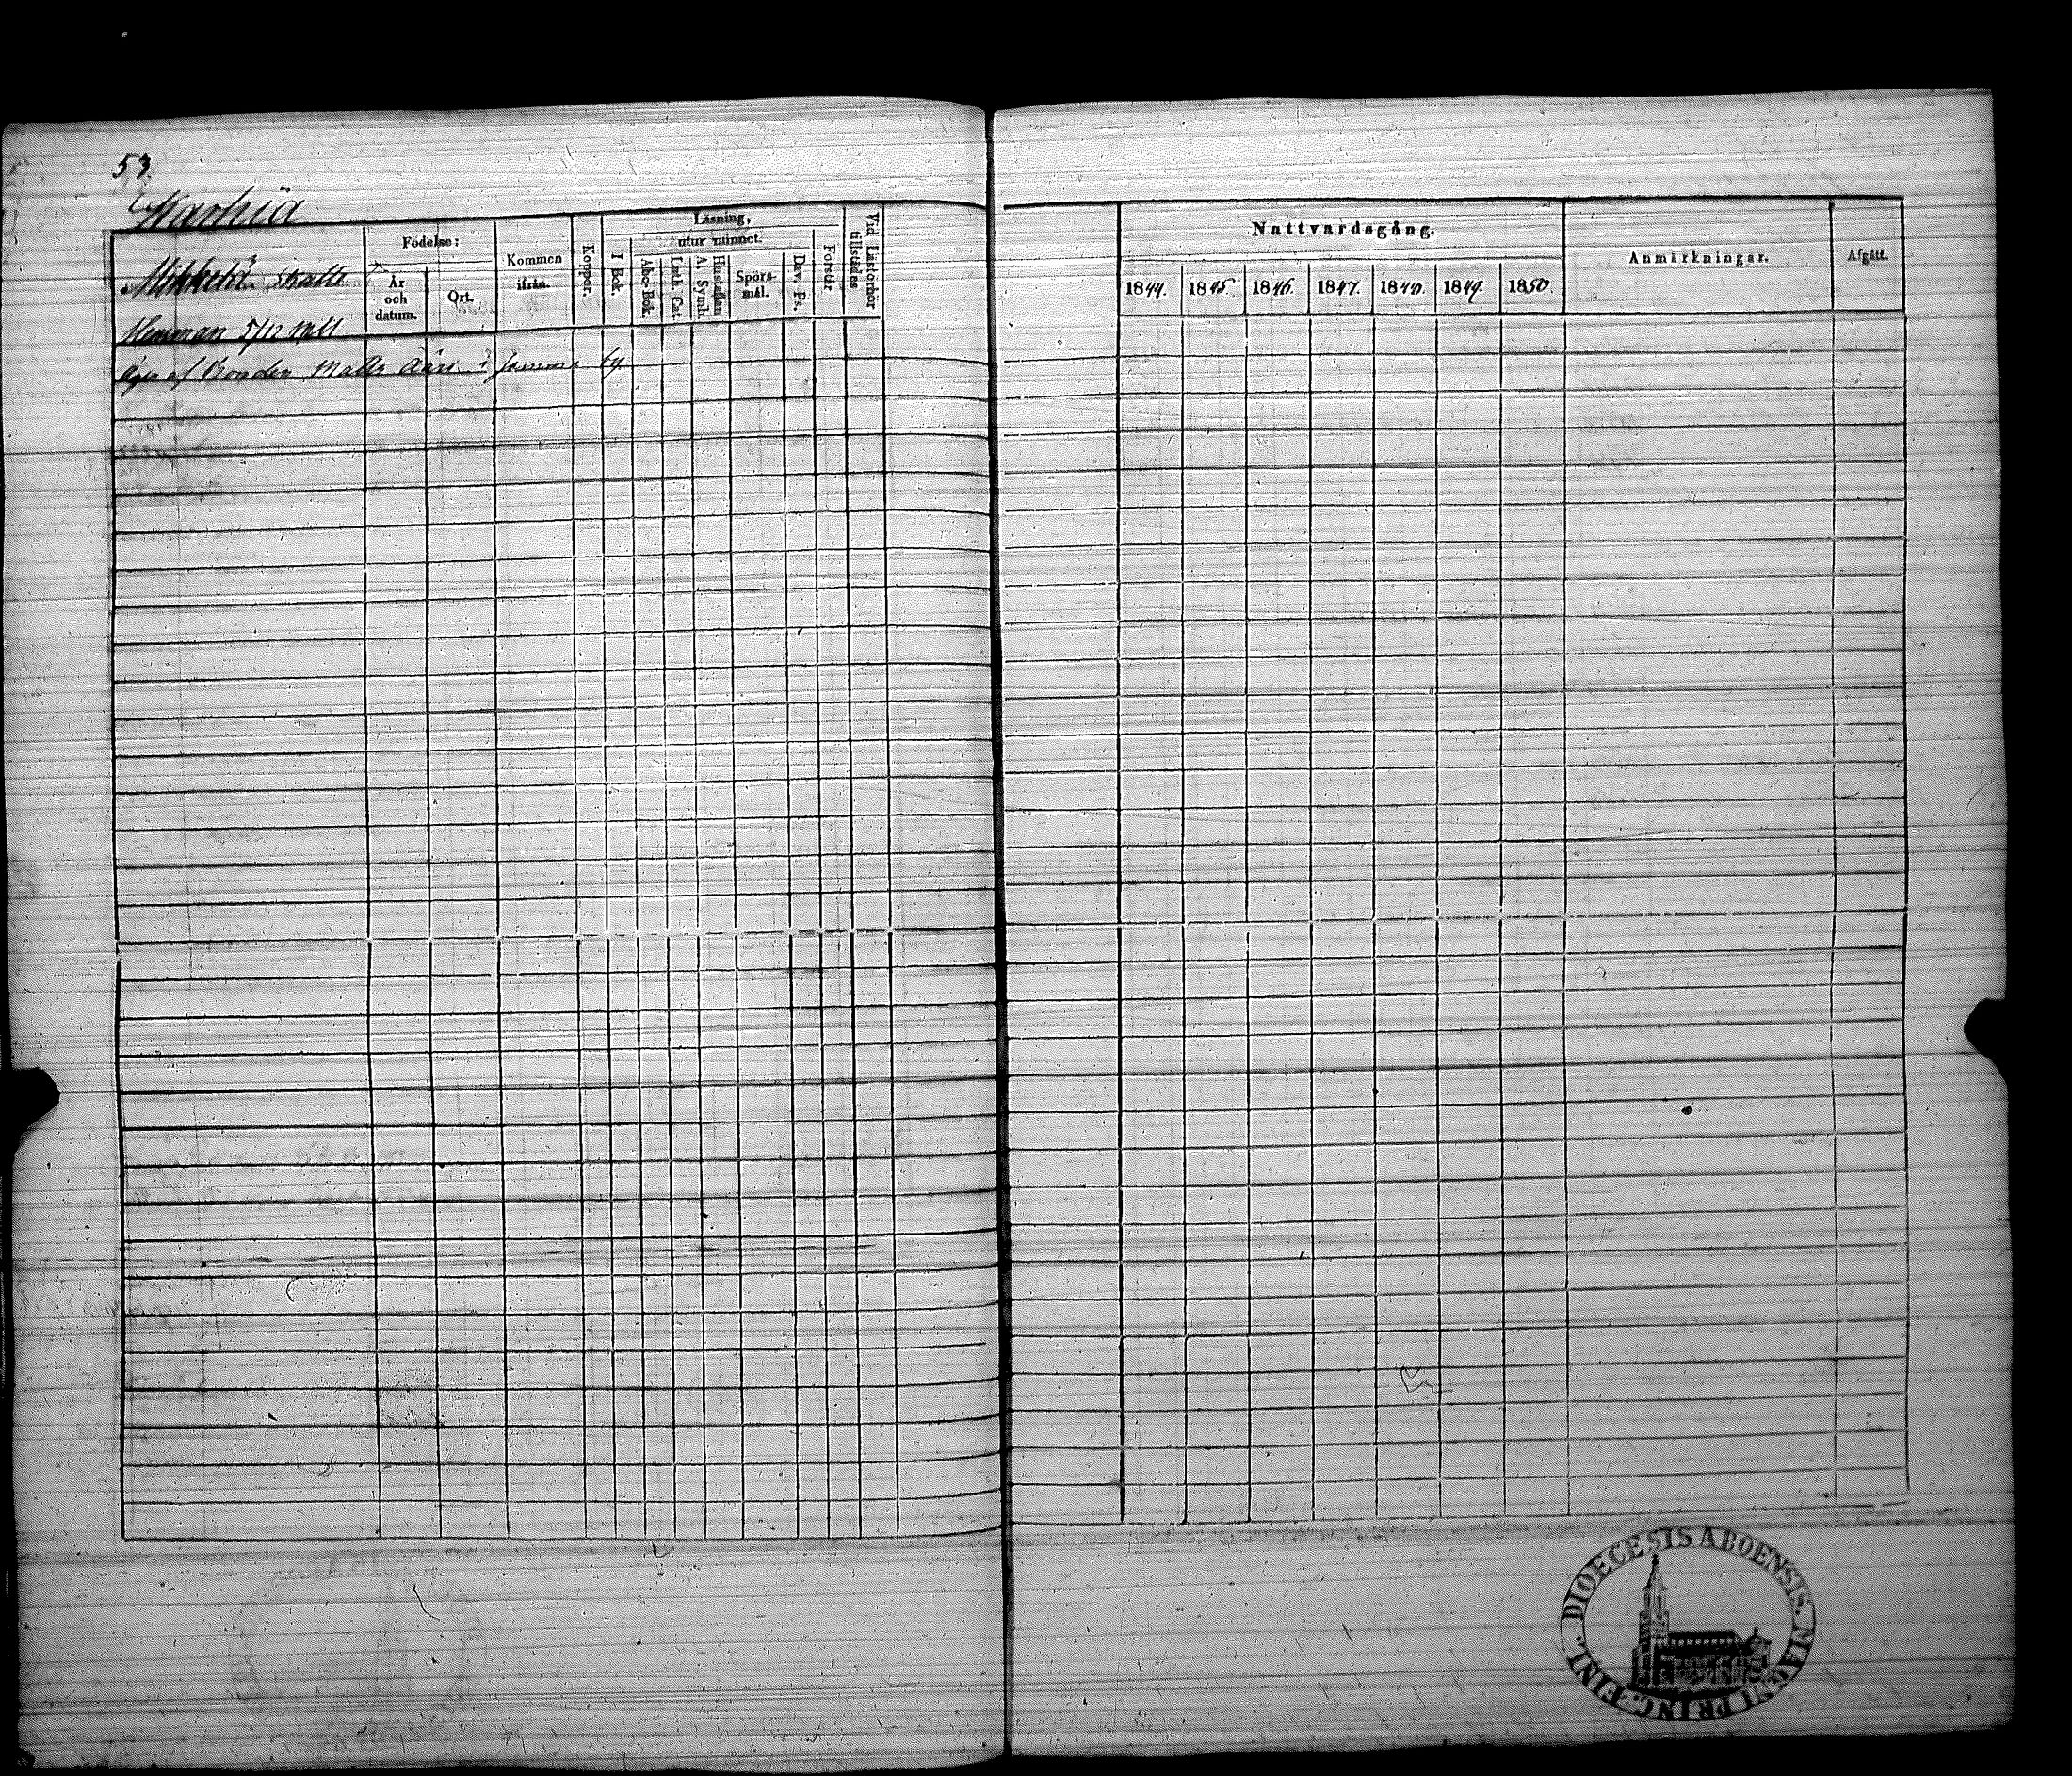 53.
Karhiä
Födelse:
Läsning,
utur minnet.
Kommen
ifrån.
Koppor.
I Bok.
Abc-Bok.
Luth. Cat.
A. Symb.
Hustaflan
Spörs-
mål.
Dav. Ps.
Förstår
Vid Läsförhör
tillstädes
År
och
datum.
Ort.
Mikkola Skatte
Hemman 5/12 mtl
Äges af Bonden Matts i samma by.
Nattvardsgång.
Anmärkningar.
Afgått.
1844. 1845. 1846. 1847. 1848. 1849. 1850.
DIOECESIS ABOENSIS. MAGNI PRINC. FINL.